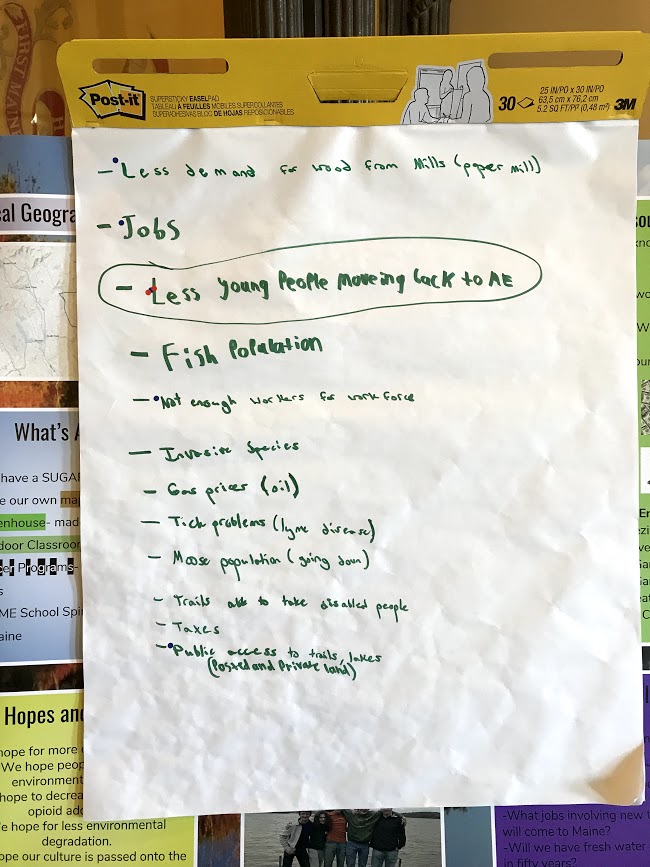 FIRST MAIN
Post-it
SUPERSTICKY EASELPAD
TABLEAU À FEUILLES MOBILES SUPERCOLLANTES
SUPERADHESIVAS BLOC DE HOJAS REPOSICIONABLES
30
25 IN/PO x 30 IN/PO
63,5 cm x 76,2 cm
5.2 SQ FT/PI² (0,48 m²)
3M
- Less demand for wood from Mills (paper mill)
- Jobs
- Less young People moveing back to ME
- Fish Polulation
- Not enough workers for work force
- Invasive Species
- Gas prices (oil)
- Tick problems (lyme disease)
- Moose population (going down)
- Trails able to take disabled people
- Taxes
- Public access to trails, lakes
(Posted and Private land)
cal Geogra
What's A
have a SUGA
e our own ma
enhouse- mad
door Classroom
cer Programs-
s
ME School Spi
aine
Hopes and
hope for more
We hope peop
environment
hope to decrea
opioid add
e hope for less environmental
degradation.
ope our culture is passed onto the
-What jobs involving new t
will come to Maine?
-Will we have fresh water
in fifty years?